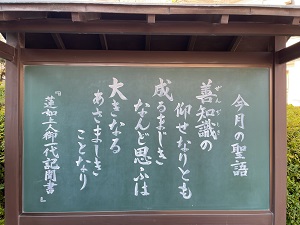 今月の聖語
善知識の
ぜんぢしき
仰せなりとも
成るまじき
なんど思ふは
大きなる
あさましき
ことなり
『蓮如上人御一代記聞書』